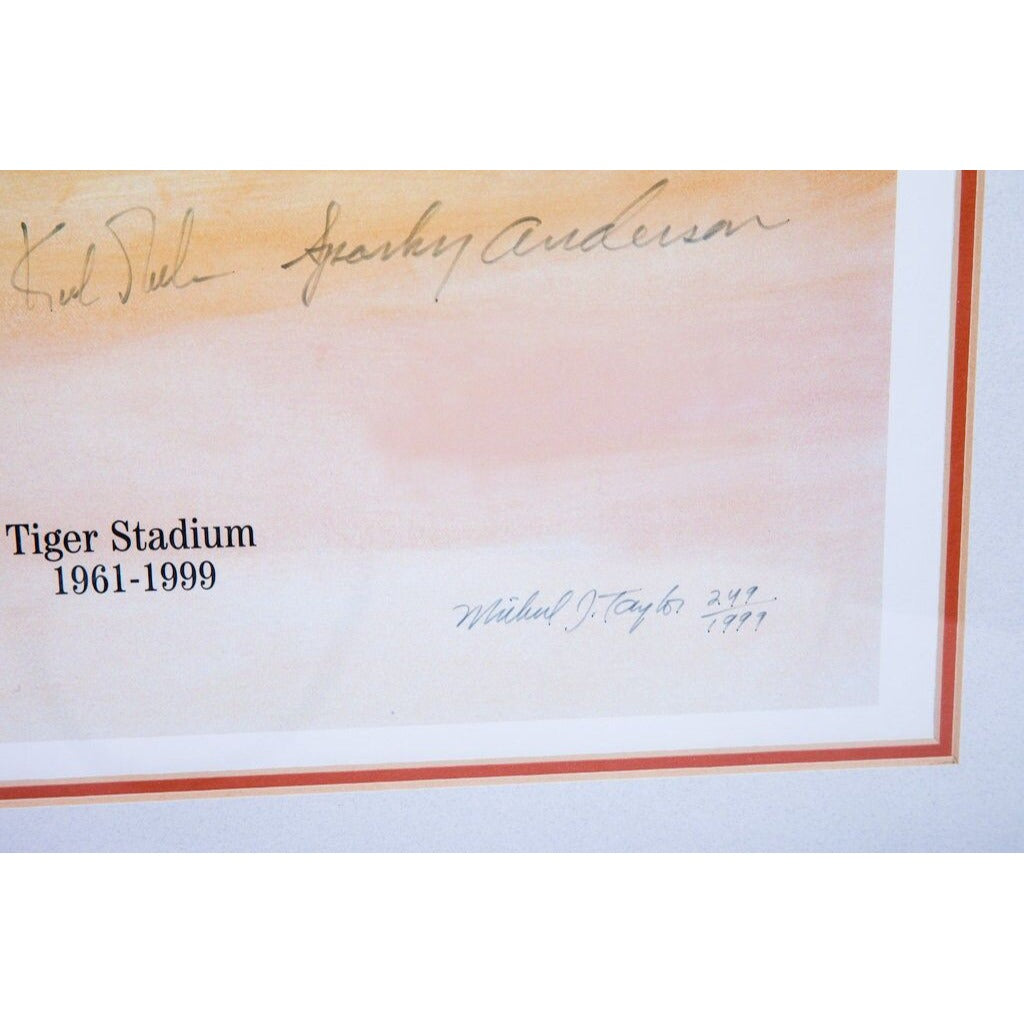 Sparky Anderson
Tiger Stadium
1961-1999
Michael J. Taylor 249/1999